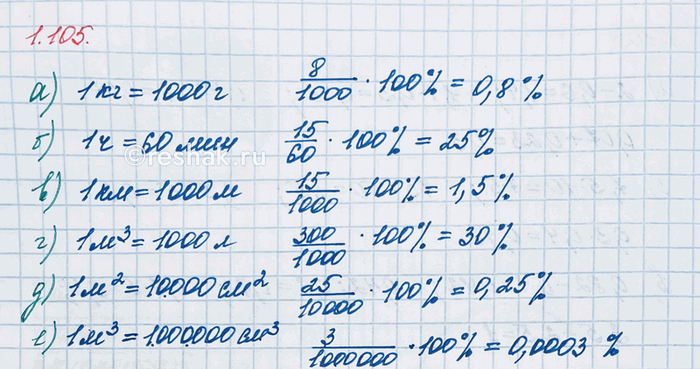 1.105.
а) 1 кг = 1000 г 8/1000 · 100% = 0,8%
б) 1 ч = 60 мин 15/60 · 100% = 25%
©reshak.ru
в) 1 км = 1000 м 15/1000 · 100% = 1,5%
г) 1 м³ = 1000 л 300/1000 · 100% = 30%
д) 1 м² = 10.000 см² 25/10000 · 100% = 0,25%
е) 1 м³ = 1.000.000 см³ 3/1000000 · 100% = 0,0003 %